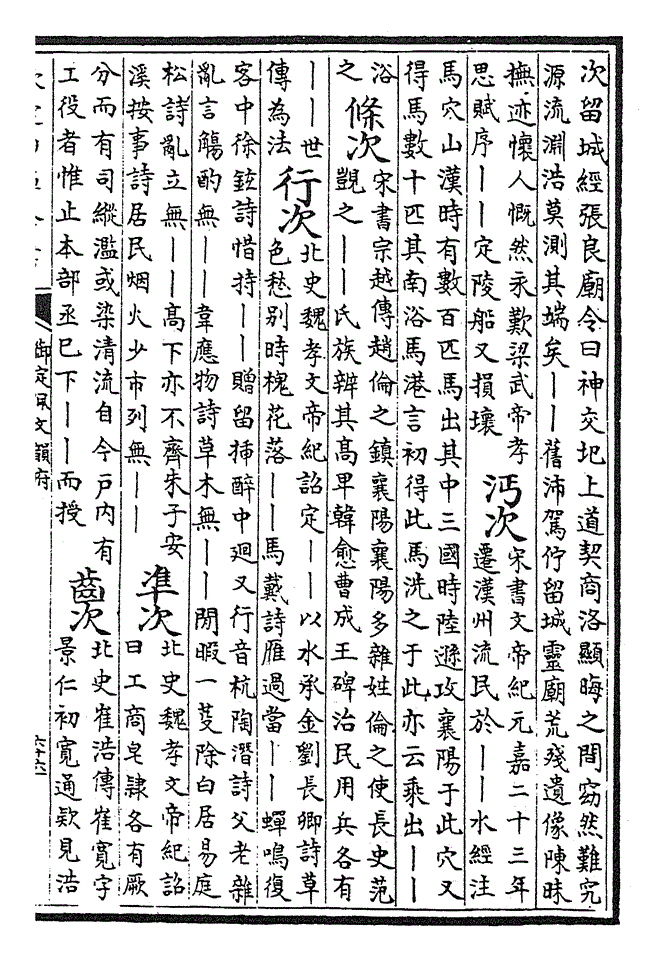 次留城經張良廟令曰神交圯上道契商洛顯晦之間窈然難究
源流淵浩莫測其端矣丨丨舊沛駕佇留城靈廟荒殘遺像陳昧
撫迹懷人慨然永歎梁武帝孝
思賦序丨丨定陵船又損壞
沔次
宋書文帝紀元嘉二十三年
遷漢州流民於丨丨水經注
馬穴山漢時有數百匹馬出其中三國時陸遜攻襄陽于此穴又
得馬數十匹其南浴馬港言初得此馬洗之于此亦云乘出丨丨
浴
之
條次
宋書宗越傳趙倫之鎮襄陽襄陽多雜姓倫之使長史范
覬之丨丨氏族辨其高卑韓愈曹成王碑治民用兵各有
丨丨世
傳為法
行次
北史魏孝文帝紀詔定丨丨以水承金劉長卿詩草
色愁别時槐花落丨丨馬戴詩雁過當丨丨蟬鳴復
客中徐鉉詩惜持丨丨贈留揷醉中迴又行音杭陶潛詩父老雜
亂言觴酌無丨丨韋應物詩草木無丨丨閒暇一芟除白居易庭
松詩亂立無丨丨高下亦不齊朱子安
溪按事詩居民烟火少市列無丨丨
凖次
北史魏孝文帝紀詔
曰工商皂隸各有厥
分而有司縱濫或染清流自今戶内有
工役者惟止本部丞巳下丨丨而授
齒次
北史崔浩傳崔寛字
景仁初寛通欵見浩
御定佩文韻府